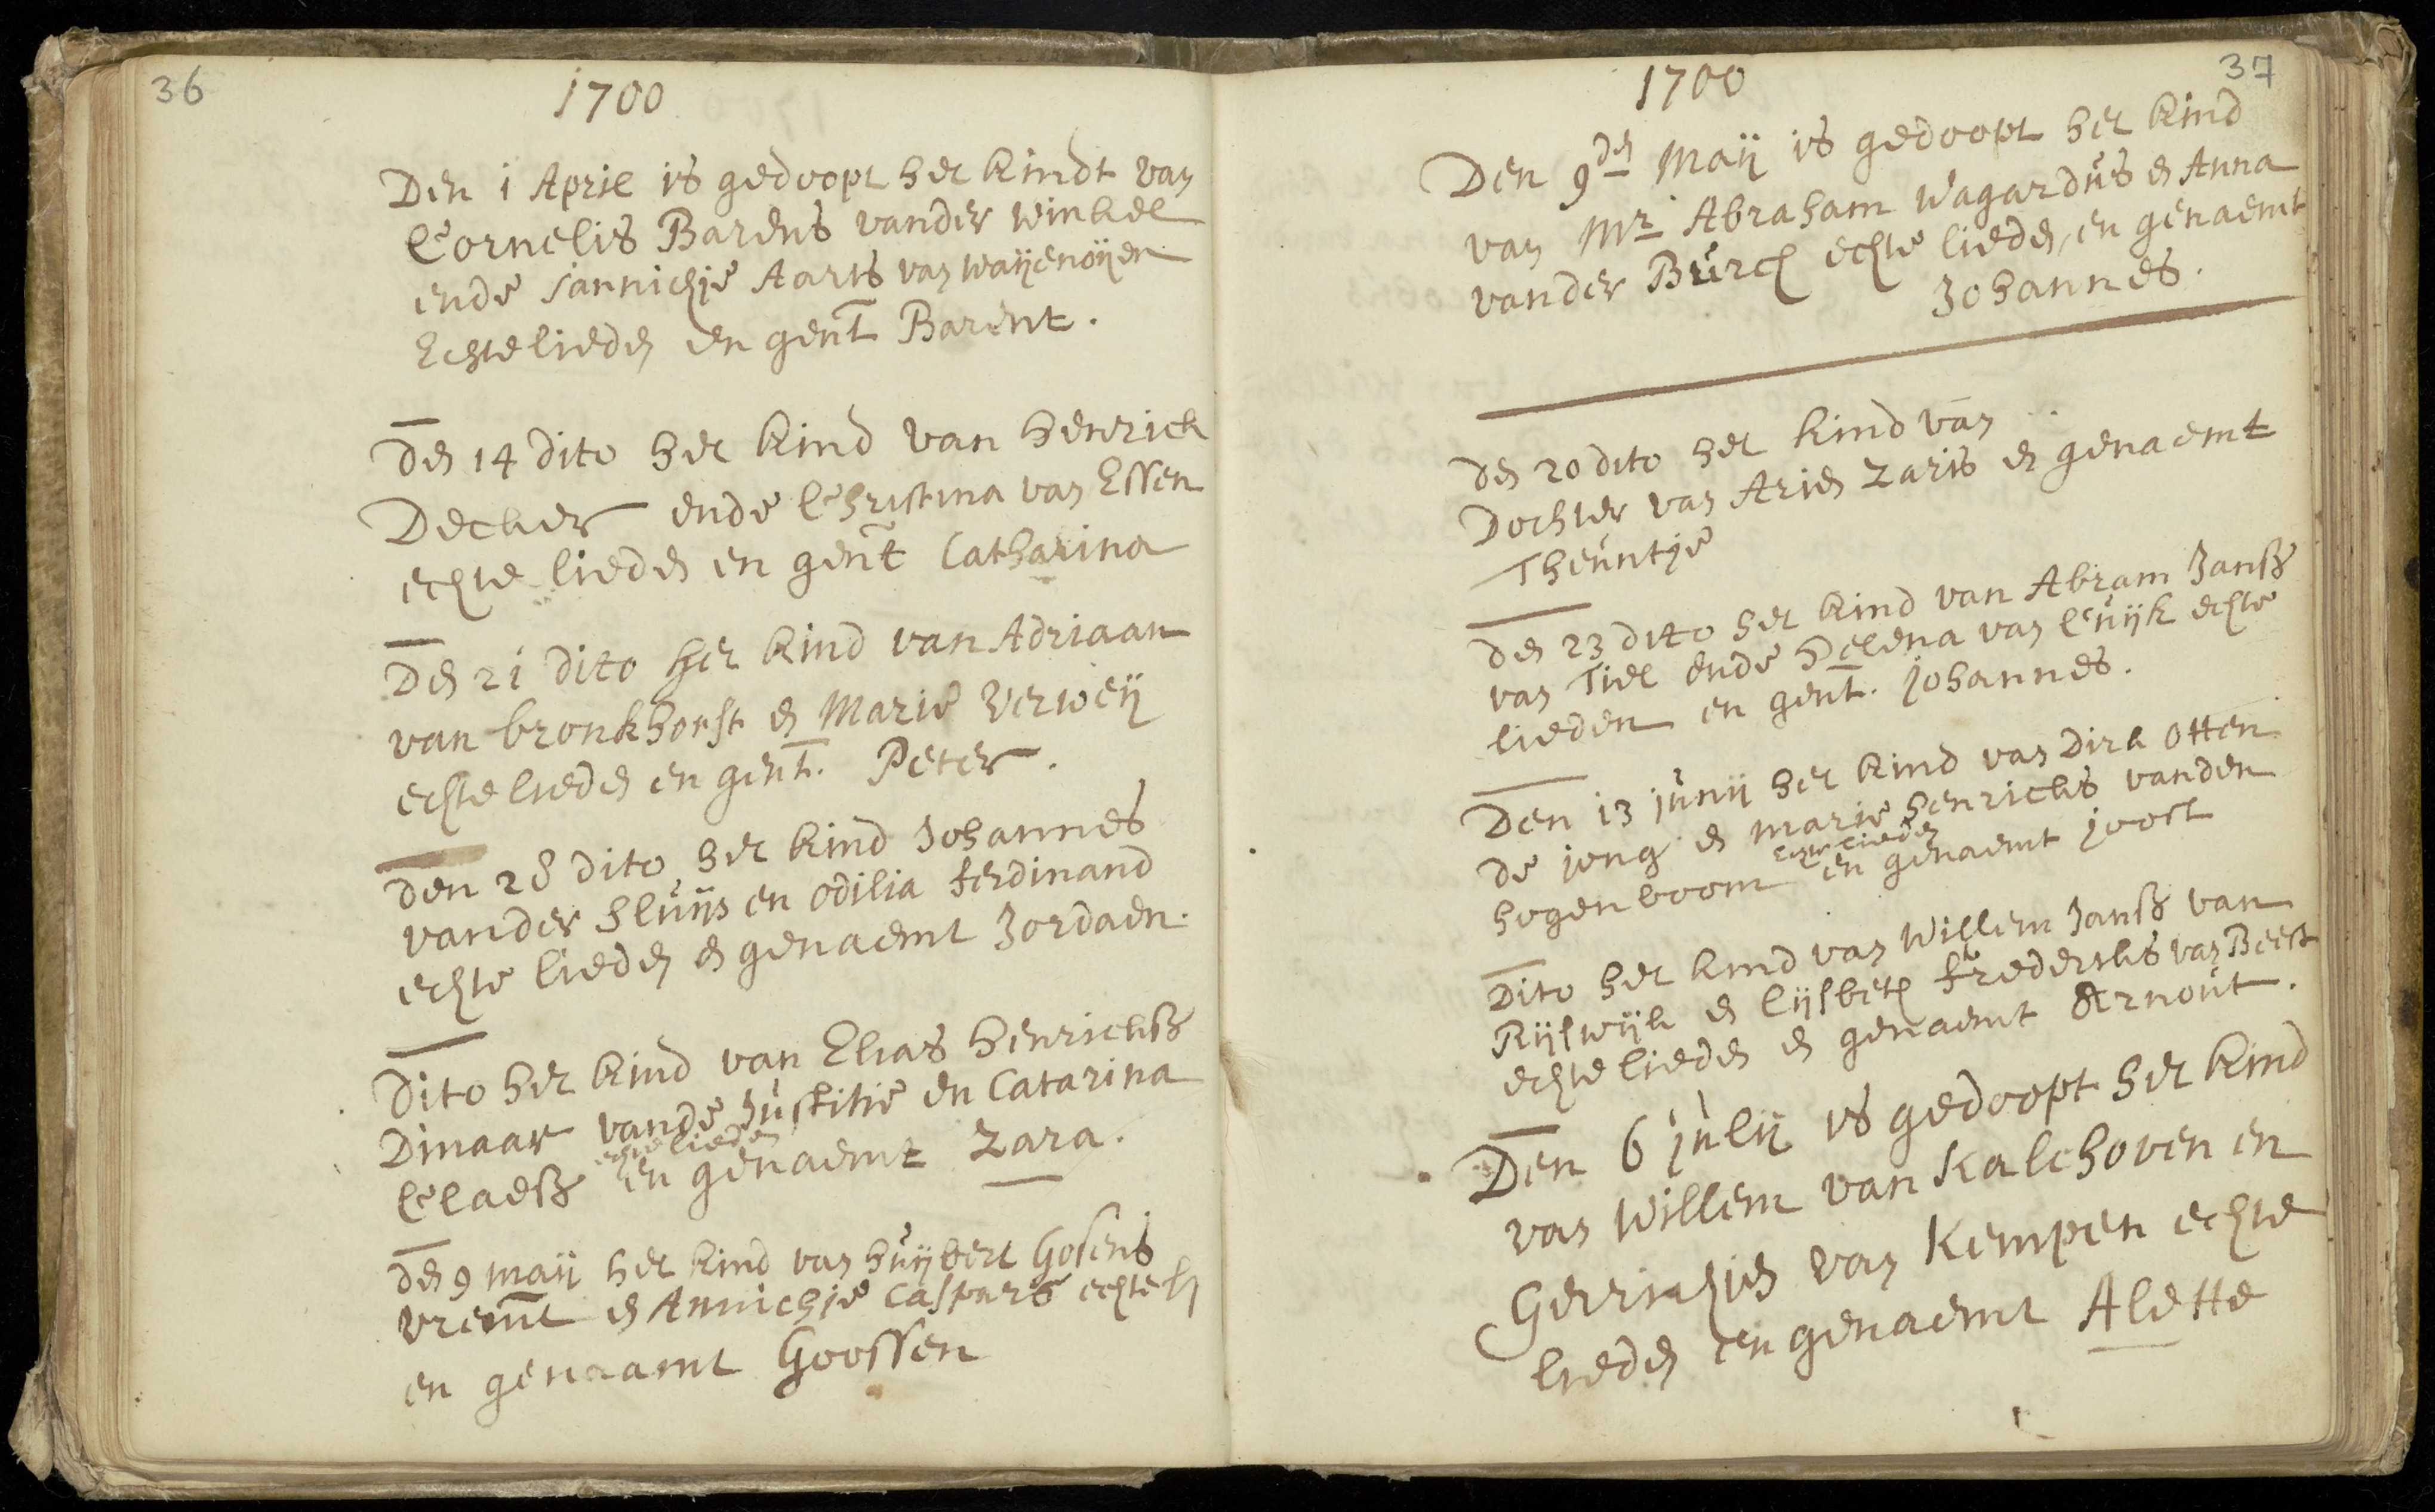 36
1700
Den 1 April is gedoopt het kindt van
Cornelis Barens vander Winkel
ende Jannichje Aarts van Waijenoijen
Echteliedn en gent Barent.
Dn 14 dito het kind van Henrick
Decker ende Christina van Essen
echte liedn en gent Catharina
Dn 21 dito het kind van Adriaan
van bronkhorst en Marie Verweij
echte liedn en gent. Peter.
Den 28 dito het kind Johannes
vander Sluijs en Odilia Ferdinand
echte liedn en genaemt Jordaen.
Dito het kind van Elias Henricksz
Dinaar vande Justitie en Catarina
echte liedn
Claesz en genaemt Zara.
Dn 9 Maij het kind van Huijbert Gosens
Vremt en Annichje Caspars echte l
en genaamt Goossen
37
1700
Den 9dn Maij is gedoopt het kind
van Mr Abraham Wagardus en Anna
vander Burch echte liedn, en genaemt
Johannes.
Dn 20 dito het kind van
Dochter van Arien Zaris en genaemt
Theuntje
Dn 23 dito het kind van Abram Jansz
van Tiel ende Helena van Cuijk echte
lieden en gent. Johannes.
Den 13 Junij het kind van Dirk Otten
de jong en Marie Henricks vanden
echte liedn
hogenboom en genaemt Joost
Dito het kind van Willem Jansz van
Rijswijk en Lijsbeth Fredericks van Beest
echte liedn en genaemt Arnout.
Den 6 Julij is gedoopt het kind
van Willem van Kalchoven en
Gerrichjen van Kempen echte
liedn en genaemt Alette